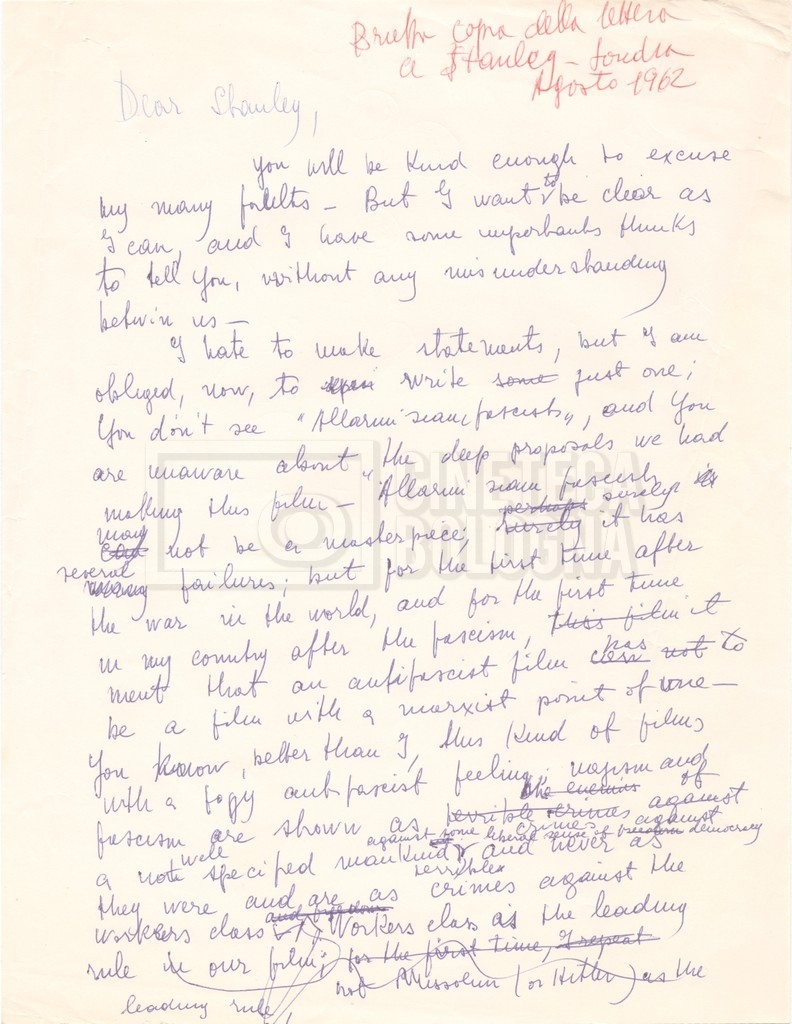 Brutta copia della lettera
a Stanley - Londra
Agosto 1962
Dear Stanley,
you will be kind enough to excuse
my many faults - But I want to be clear as
I can, and I have some importants thinks
to tell you, without any misunderstanding
betwin us -
I hate to make statements, but I am
obliged, now, to write some just one;
You don't see "Allarmi siam fascists", and you
are unaware about the deep proposals we had
making this film - "Allarmi siam fascists"
may not be a masterpiece; perhaps surely it has
several failures; but for the first time after
the war in the world, and for the first time
in my country after the fascism, this film it
ment that an antifascist film has not to
be a film with a marxist point of vue -
You know, better than I, this kind of films
with a fogy antifascist feeling; nazism and
fascism are shown as the enemies of
terrible crimes against
a not well specified mankind, against some liberal sense of freedom democracy
crimes against
and never as
they were and are as terrible crimes against the
workers class and freedom. Workers class is the leading
rule in our film; for the first time, I repeat
not Mussolini (or Hitler) as the
leading rule,
CINETECA
BOLOGNA